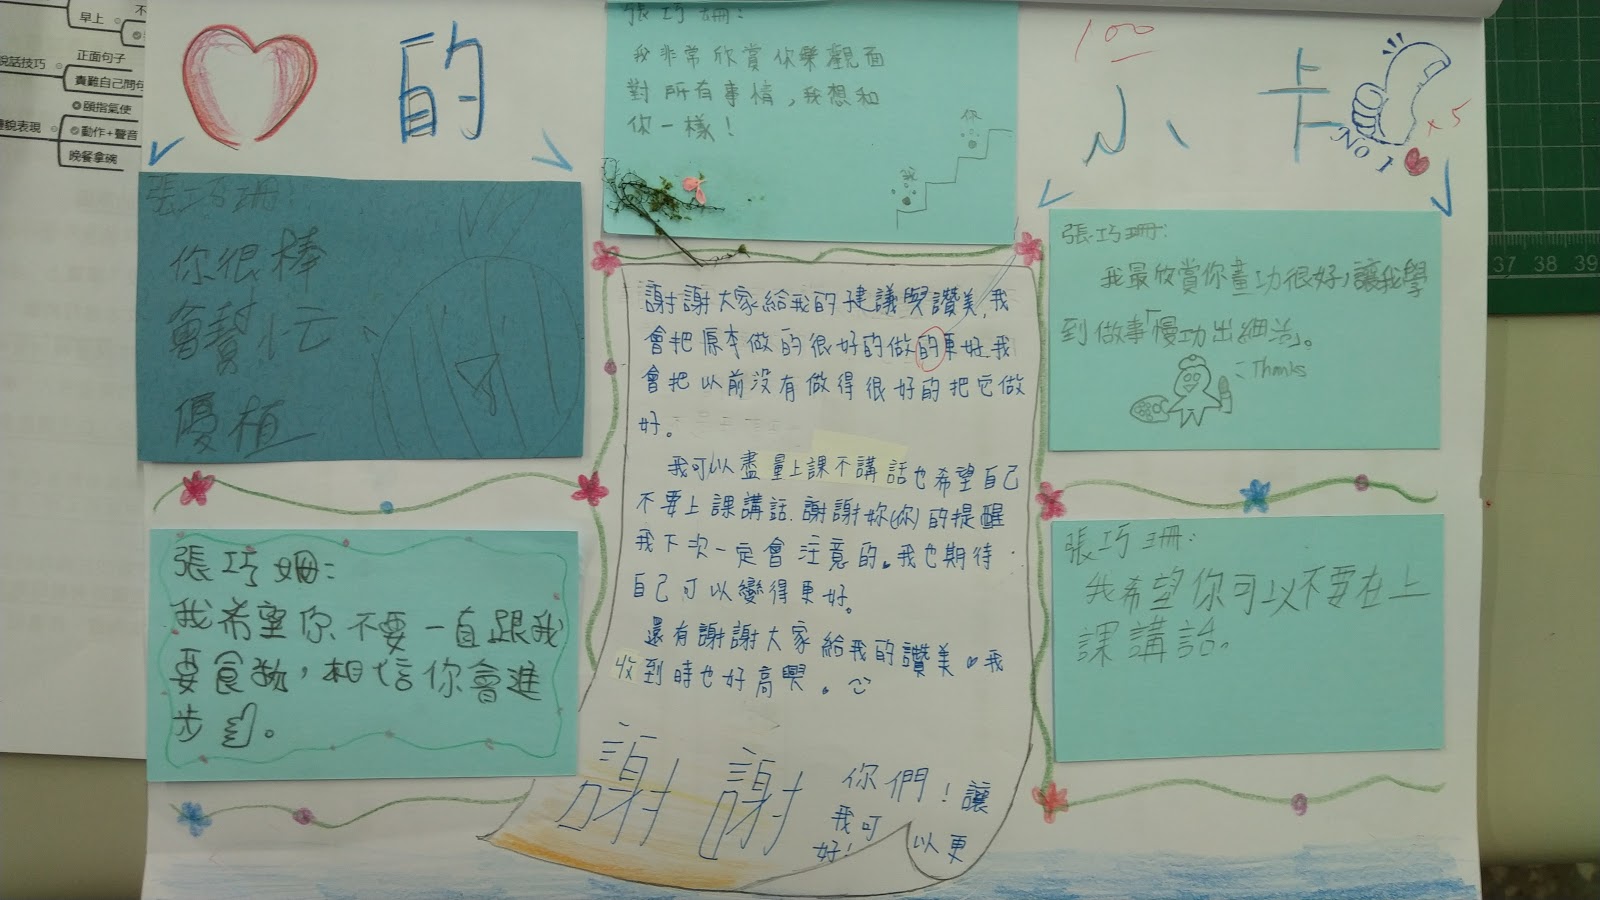 早上
不
說話技巧
正面句子
責難自己問句
頤指氣使
動作+聲音
晚餐拿碗
體貌表現
的
小卡
100
No 1
x5
張巧姍:
我非常欣賞你樂觀面
對所有事情,我想和
你一樣!
你
我
張巧珊:
你很棒
會幫忙
優植
張巧珊:
我最欣賞你畫功很好,讓我學
到做事「慢功出細活」。
Thanks
謝謝大家給我的建議與讚美,我
會把原本做的很好的做的更好.我
會把以前沒有做得很好的把它做
好。
我可以盡量上課不講話也希望自己
不要上課講話.謝謝妳(你)的提醒
我下次一定會注意的。我也期待
自己可以變得更好。
還有謝謝大家給我的讚美。我
收到時也好高興。
謝謝
你們!讓
我可以更
好!
張巧姍:
我希望你不要一直跟我
要食物,相信你會進
步。
張巧珊:
我希望你可以不要在上
課講話。
37 38 39